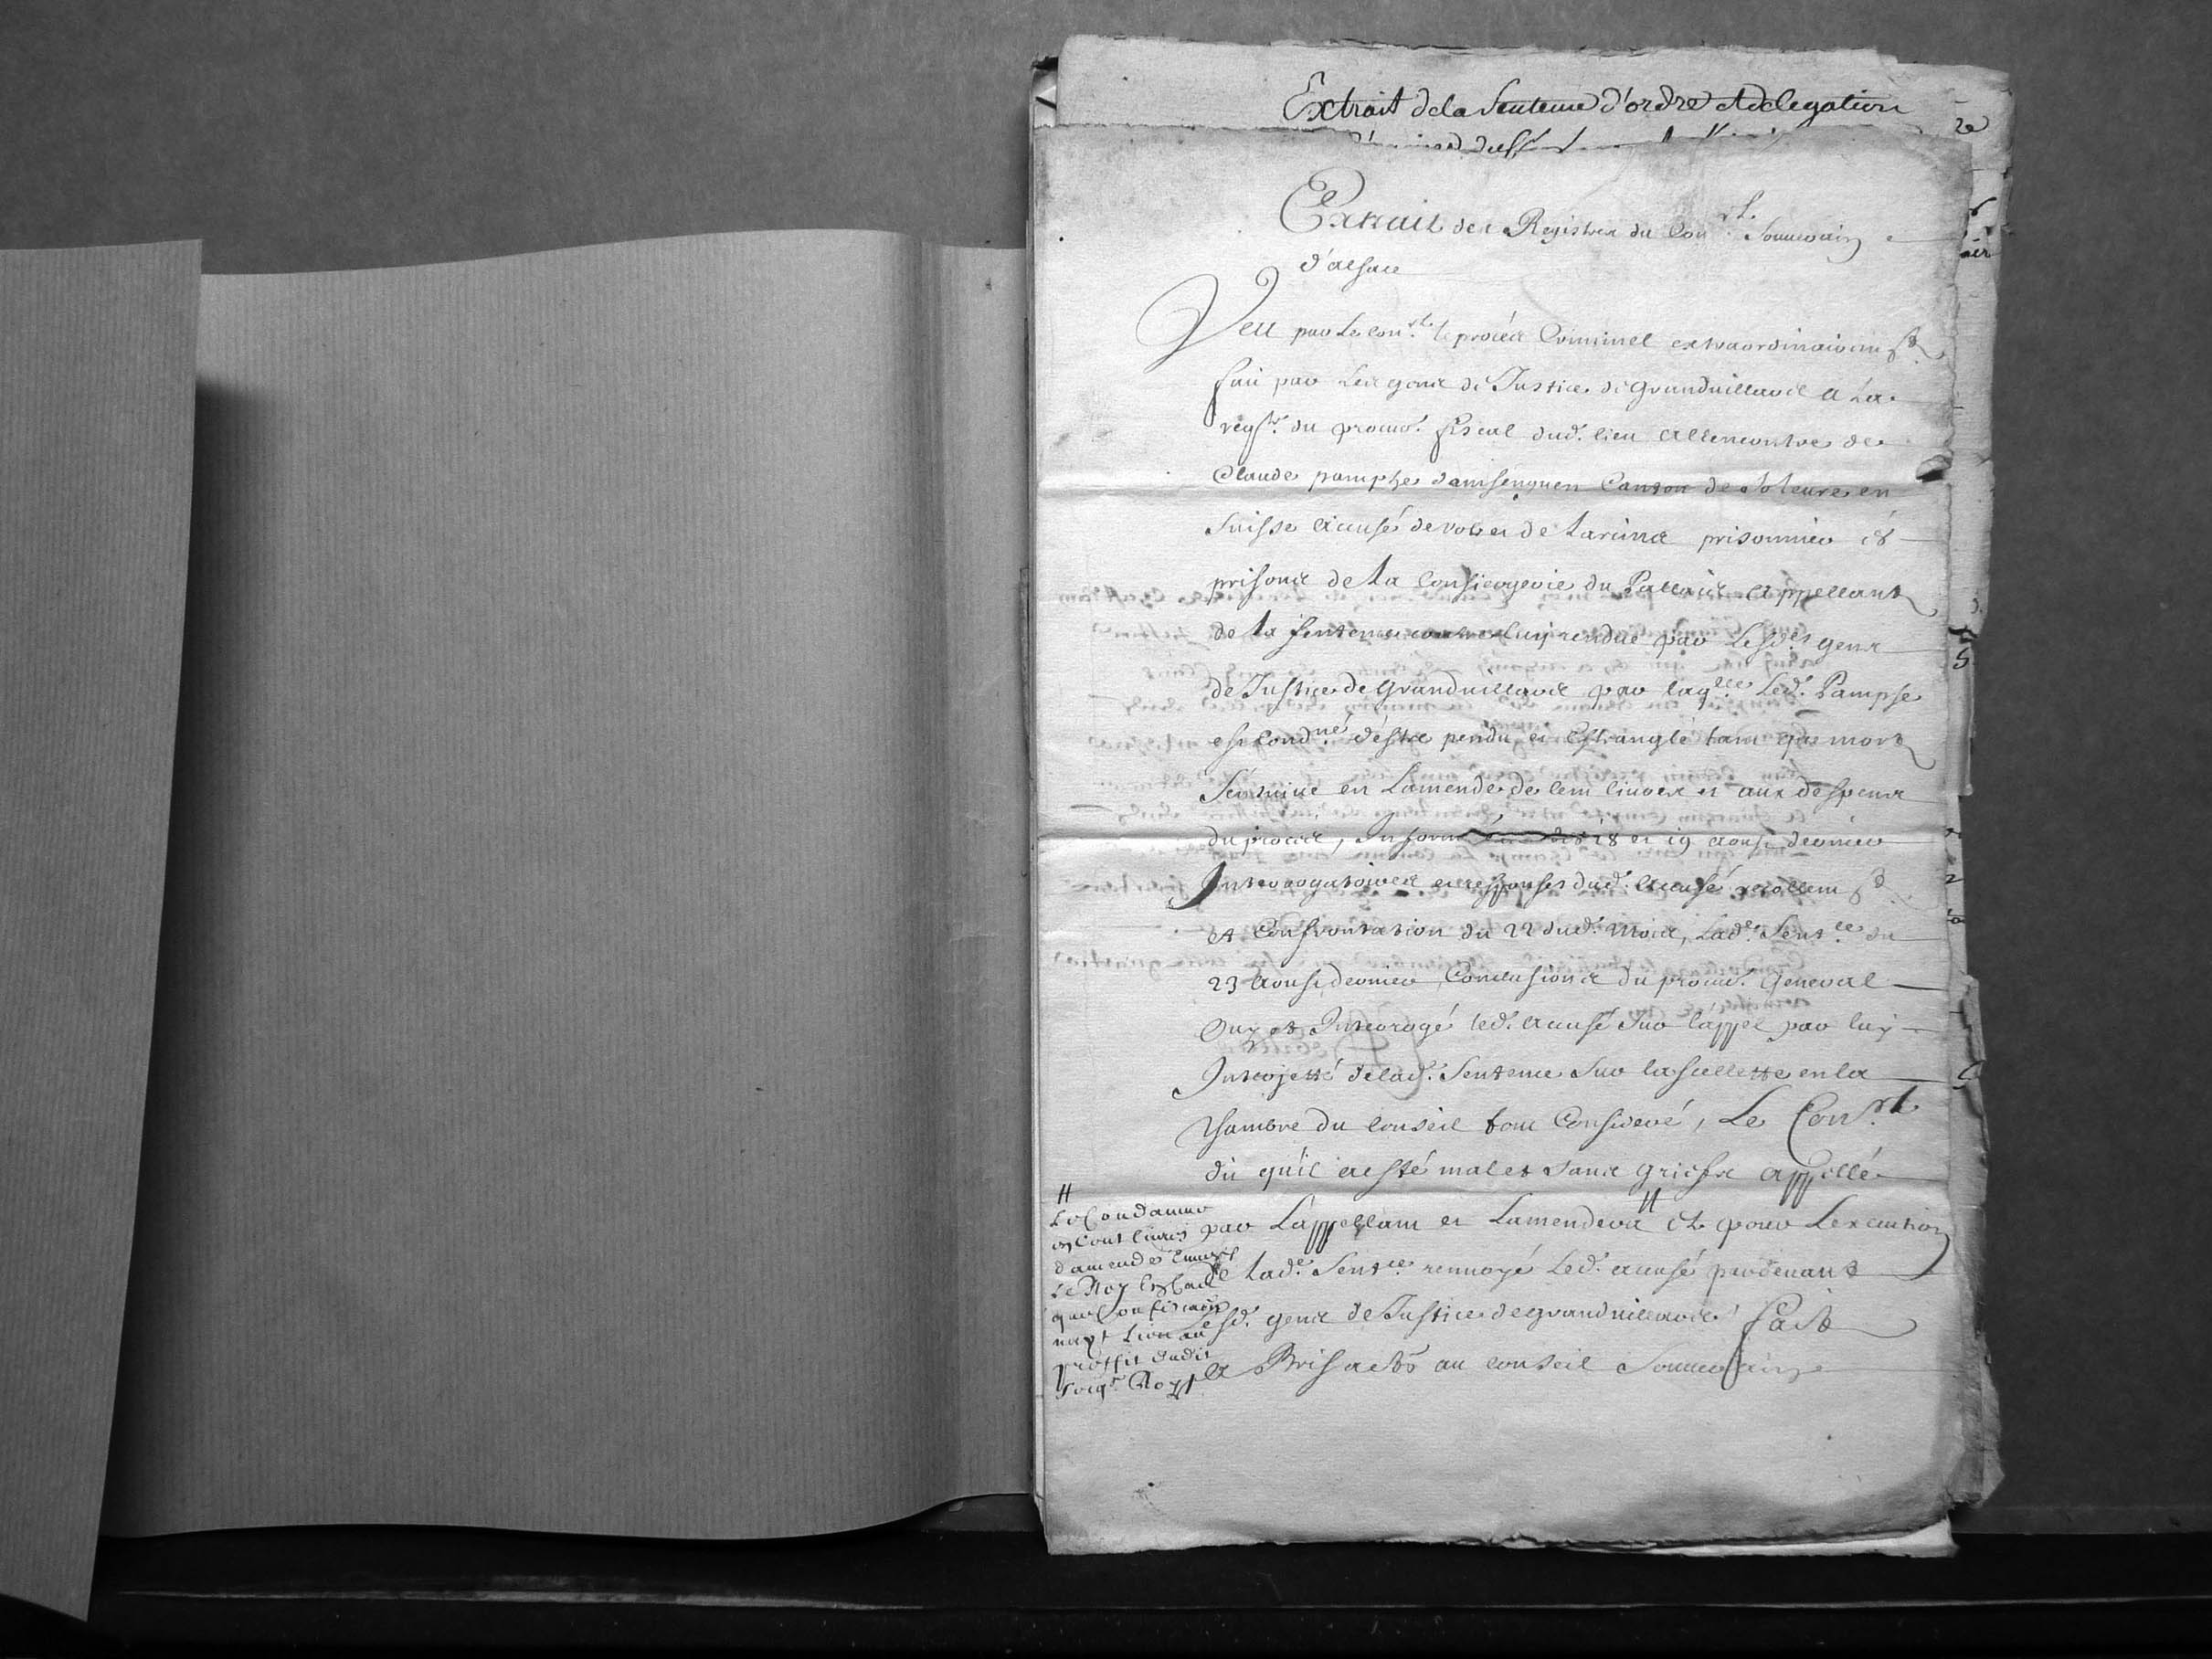 Extrait de la Sentence d'ordre et delegation
Extrait des Registres du Con.el Souuerain
d'alsace
Veu par Le Con.el le procés Criminel extraordinairem.t
fait par Les gens de Justice de granduillard a La
req.te du procur.r fiscal dud. lieu allencontre de
Claude pamphe Canton de Soleure en
Suisse accusé de vol et de larcins prisonnier és
prisons de la Consiergerie du Pallais appellant
de la sentence contre luy rendue par Lesd.es gens
de Justice de granduillard par laq.lle Led. Pampse
est Cond.né d'éstre pendu et Estranglé tant que mort
s'ensuiue en Lamende de Cent liures et aux despens
du procés, 18 et 19 aoust dernier
Interrogatoires et responses dud. accusé recollem.t
et Confrontation du 22 dud. Mois, Lad.e Sent.ce du
23 aoust dernier Conclusions du procur. General
Ouy et Interrogé led. accusé sur l'appel par luy
Interjetté de lad. Sentence sur la sellette en la
Chambre du Conseil tout Consideré, Le Con.el
dit qu'il a esté mal et sans griefs appellé
par L'appellant et Lamendera # et pour Lexecution
de lad.e Sent.ce renuoyé Led. accusé pardeuant
Lesd. gens de Justice de granduillard fait
a Brisack au Conseil Souuerain
#
Le Condamne
en Cent liures
d'amende Enuers
Le Roy
que Confiscaõn
nayt Lieu au
proffit dudit
Seig.r Roy #